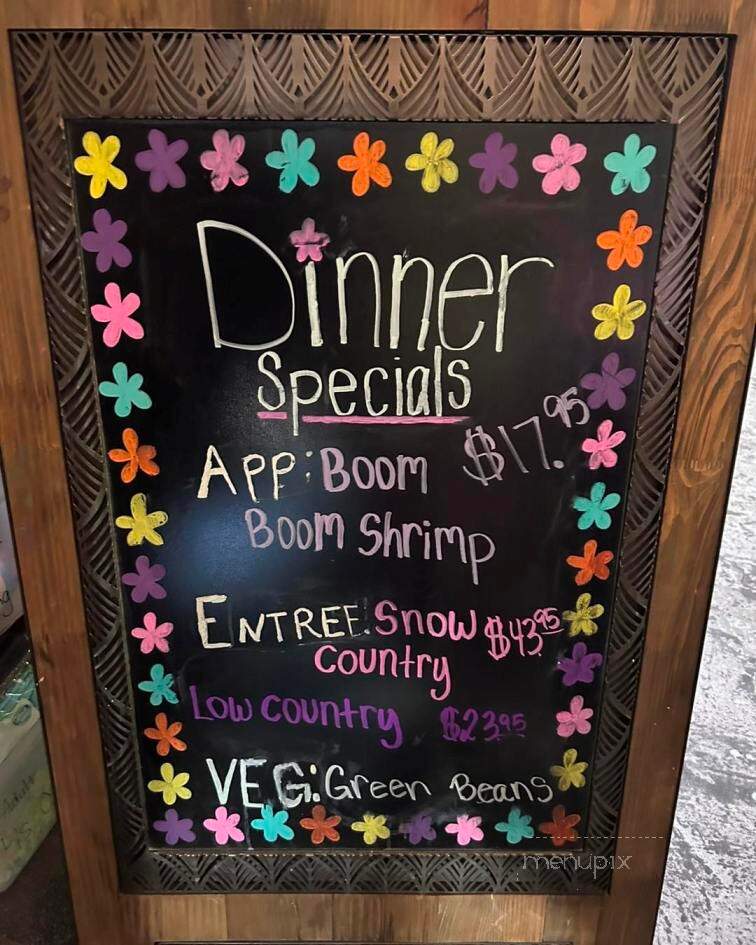 Dinner
Specials
App: Boom $17.95
Boom Shrimp
Entree: Snow $43.95
Country
Low Country $23.95
VEG: Green Beans
menupix